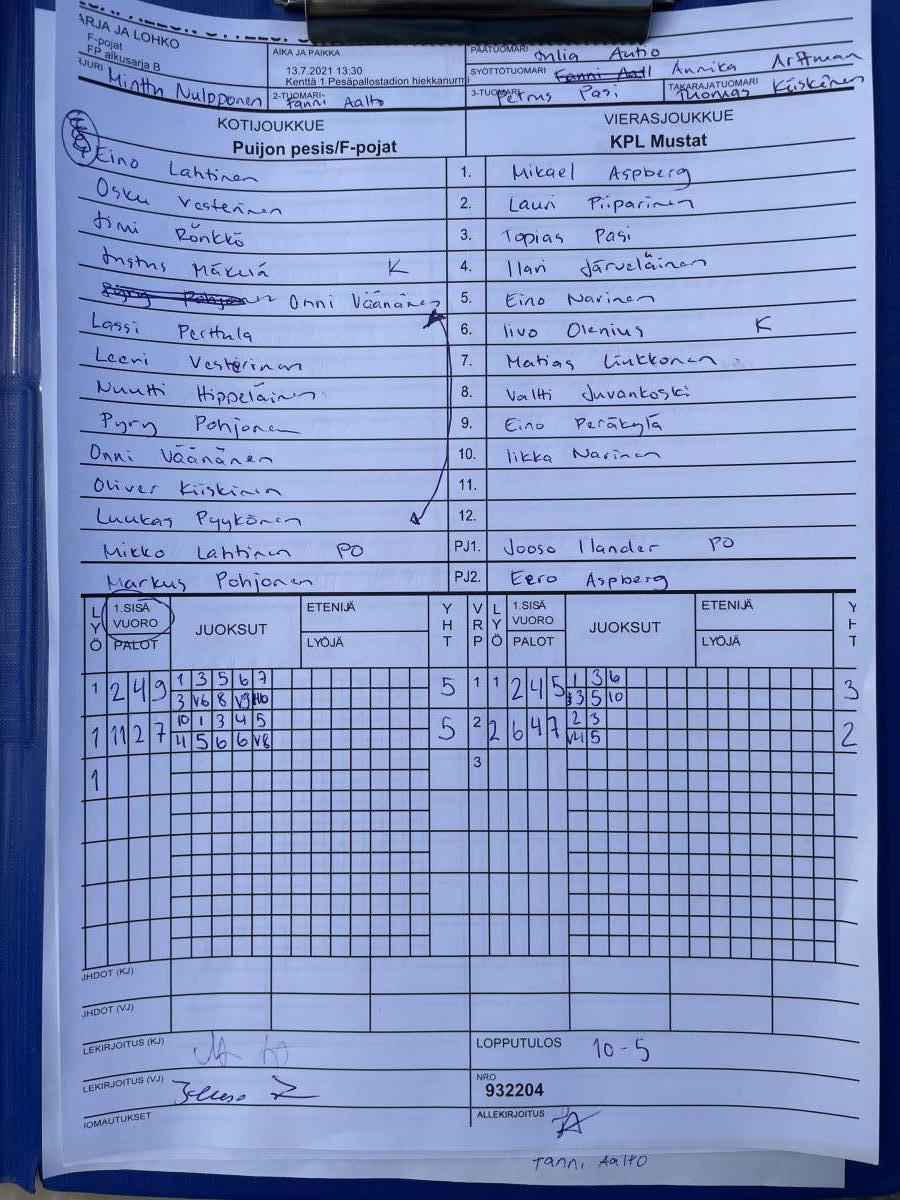 ARJA JA LOHKO
F-pojat
FP alkusarja B
Minttu Nulpponen
AIKA JA PAIKKA
13.7.2021 13:30
Kenttä 1 Pesäpallostadion hiekkanurmi
2-TUOMARI Fanni Aalto
PÄÄTUOMARI Julia Autio
SYÖTTÖTUOMARI Annika Arffman
3-TUOMARI Petrus Pasi
TAKARAJATUOMARI Thomas Kiiskinen
KOTIJOUKKUE
Puijon pesis/F-pojat
VIERASJOUKKUE
KPL Mustat
Eino Lahtinen 1. Mikael Aspberg
Osku Vesterinen 2. Lauri Piiparinen
Jimi Rönkkö 3. Topias Pasi
Justus Mäkelä K 4. Ilari Järveläinen
Onni Väänänen 5. Eino Narinen
Lassi Perttula 6. Iivo Olenius K
Leevi Vesterinen 7. Matias Liukkonen
Nuutti Hippeläinen 8. Valtti Juvankoski
Pyry Pohjonen 9. Eino Peräkylä
Onni Väänänen 10. Iikka Narinen
Oliver Kiiskinen 11.
Luukas Pyykönen 12.
Mikko Lahtinen PO PJ1. Jooso Ilander PO
Markus Pohjonen PJ2. Eero Aspberg
LYÖ 1.SISÄ VUORO PALOT JUOKSUT ETENIJÄ LYÖJÄ YHT VRP LYÖ 1.SISÄ VUORO PALOT JUOKSUT ETENIJÄ LYÖJÄ YHT
1 2 4 9 1 3 5 6 7 5 1 1 2 4 5 1 3 6 3
3 V6 8 V9 3 5 10
1 11 2 7 10 1 3 4 5 5 2 2 6 4 7 2 3 2
4 5 6 6 V8 V4 5
1 3
JHDOT (KJ)
JHDOT (VJ)
LEKIRJOITUS (KJ)
LOPPUTULOS 10-5
LEKIRJOITUS (VJ)
NRO
932204
IOMAUTUKSET
ALLEKIRJOITUS
Fanni Aalto